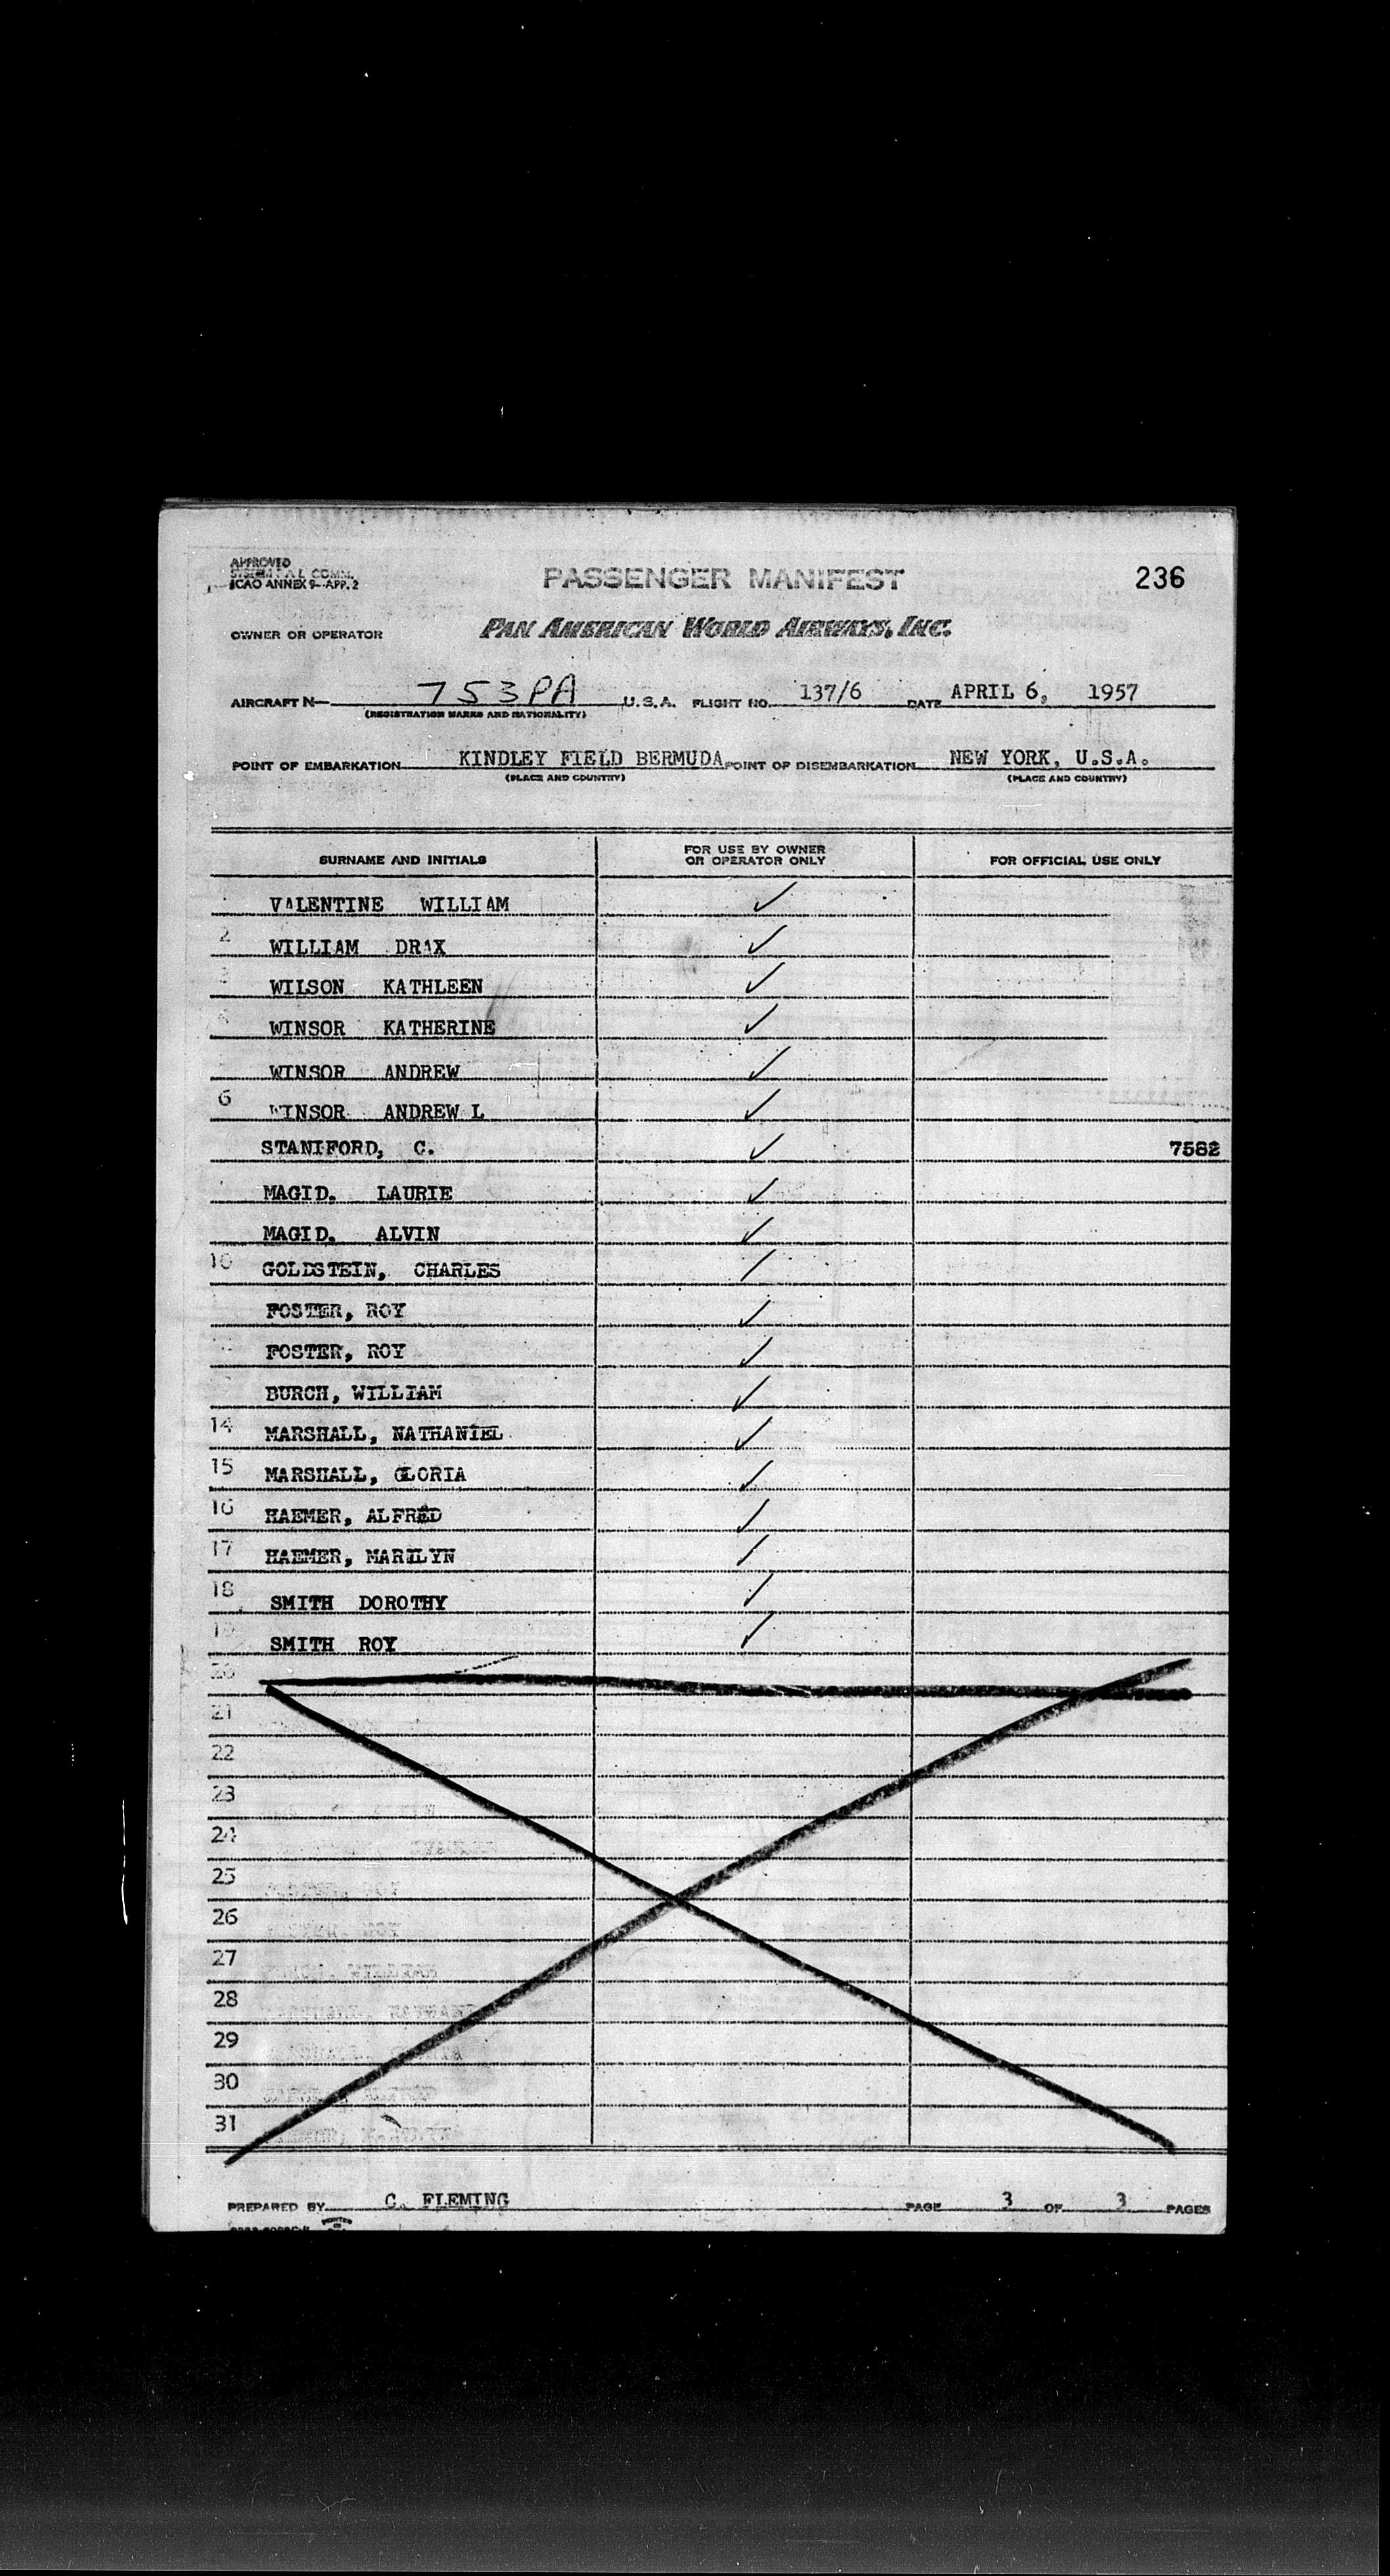 APPROVED
ICAO ANNEX 9-APP. 2
PASSENGER MANIFEST
236
OWNER OR OPERATOR
PAN AMERICAN WORLD AIRWAYS, INC.
AIRCRAFT N— 753PA U.S.A. FLIGHT NO. 137/6 DATE APRIL 6, 1957
(REGISTRATION MARKS AND NATIONALITY)
POINT OF EMBARKATION KINDLEY FIELD BERMUDA POINT OF DISEMBARKATION NEW YORK, U.S.A.
(PLACE AND COUNTRY) (PLACE AND COUNTRY)
SURNAME AND INITIALS
FOR USE BY OWNER
OR OPERATOR ONLY
FOR OFFICIAL USE ONLY
VALENTINE WILLIAM ✓
2 WILLIAM DRAX ✓
WILSON KATHLEEN ✓
WINSOR KATHERINE ✓
WINSOR ANDREW ✓
6 WINSOR ANDREW L ✓
STANIFORD, C. ✓ 7582
MAGID. LAURIE ✓
MAGID. ALVIN ✓
10 GOLDSTEIN, CHARLES ✓
FOSTER, ROY ✓
FOSTER, ROY ✓
BURCH, WILLIAM ✓
14 MARSHALL, NATHANIEL ✓
15 MARSHALL, GLORIA ✓
16 HAEMER, ALFRED ✓
17 HAEMER, MARILYN ✓
18 SMITH DOROTHY ✓
19 SMITH ROY ✓
20
21
22
23
24
25
26
27
28
29
30
31
PREPARED BY C. FLEMING PAGE 3 OF 3 PAGES